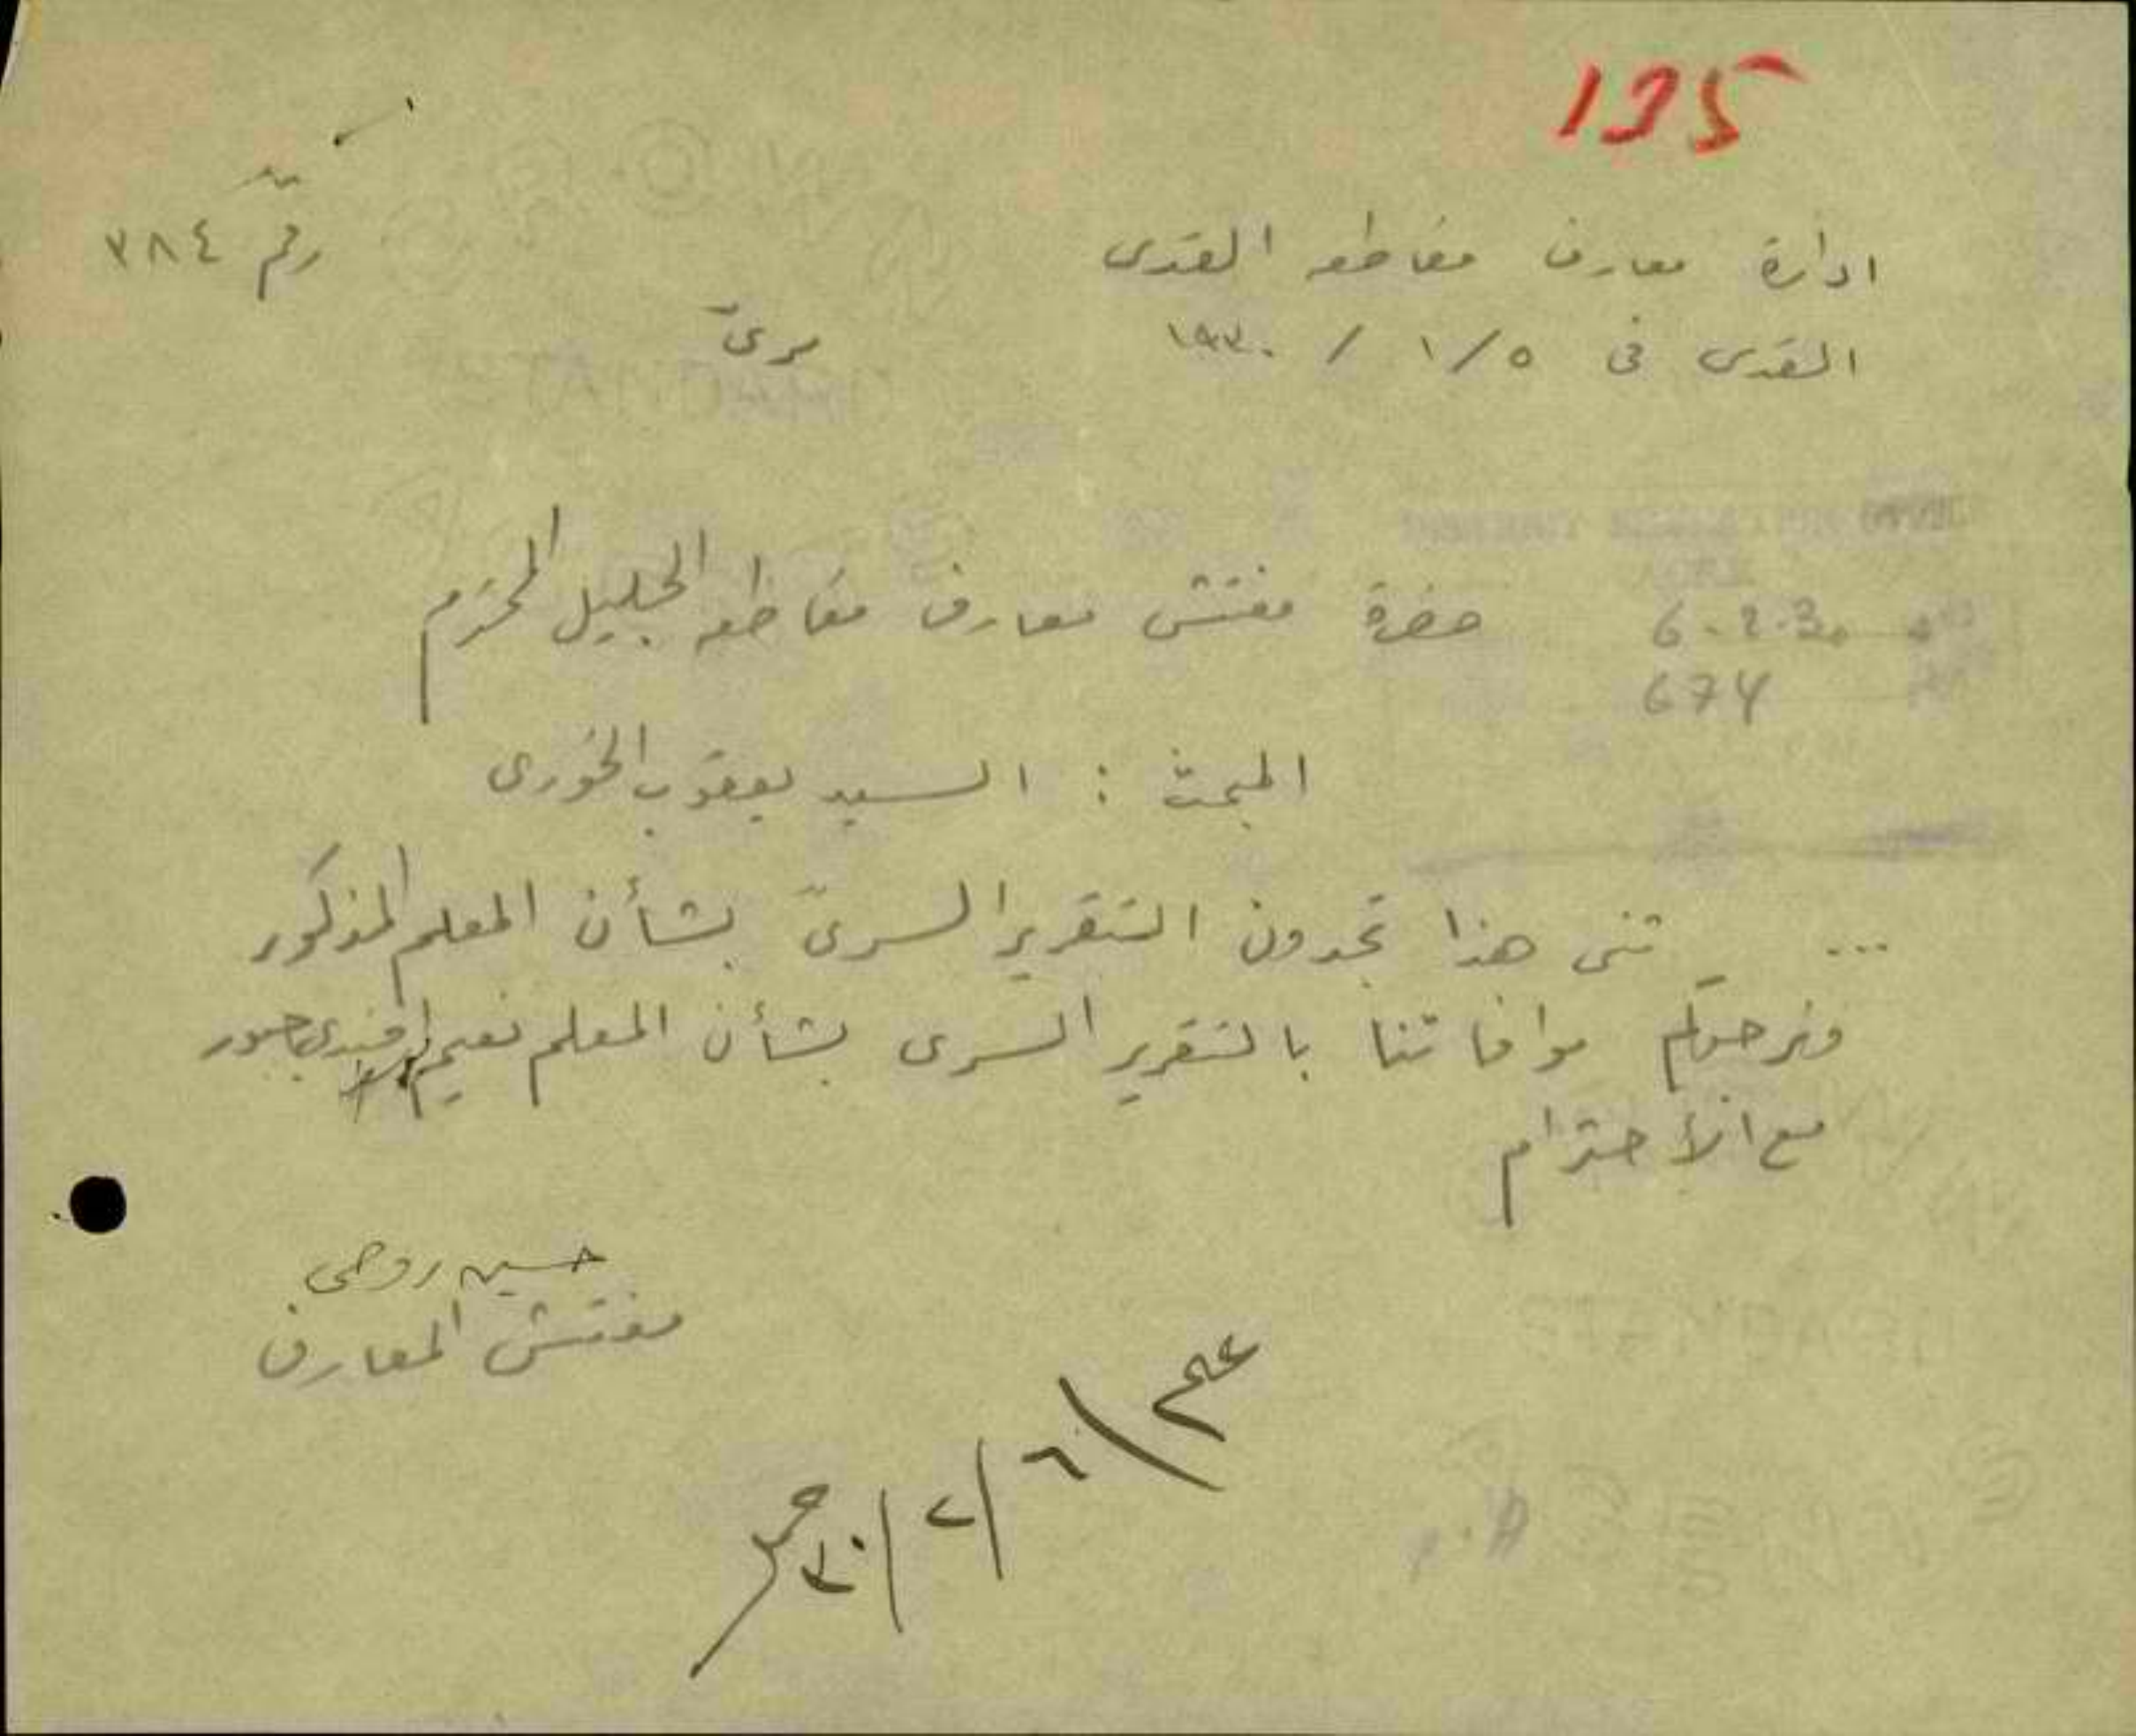 135
ادارة معارف مقاطعه القدس
رقم ٣٨٤
القدس في ٥/١/١٩٣٠
سريّ
حضرة مفتش معارف مقاطعه الجليل المحترم
6.2.30
674
المبحث : السيد يعقوب الخوري
... تني هذا تجدون التقرير السريّ بشأن المعلم المذكور
ونرجوكم موافاتنا بالتقرير السري بشأن المعلم نعيم افندي
مع الأحترام
حسين روحي
مفتش المعارف
٦/٢/٣٠